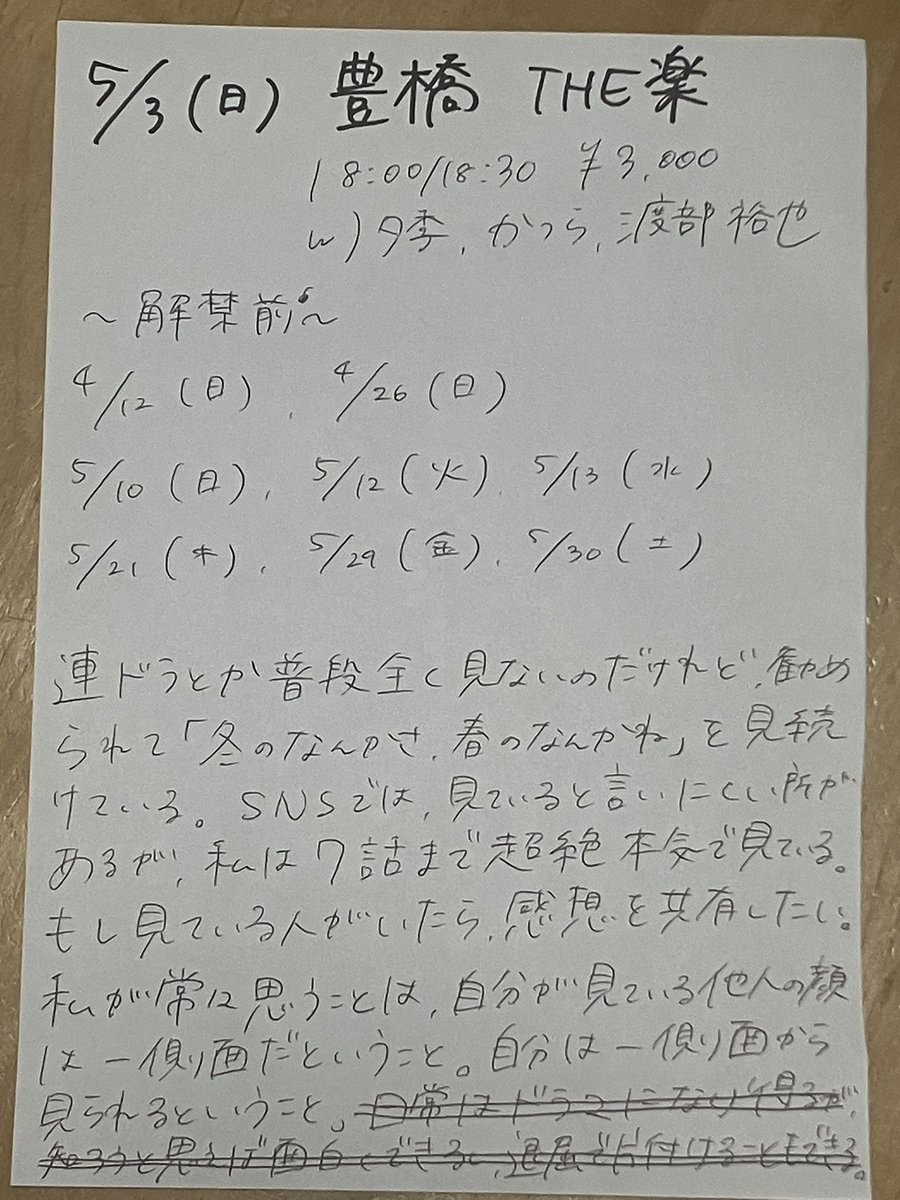 5/3(日) 豊橋 THE楽
18:00/18:30 ¥3,000
w)夕季, かつら, 渡部裕也
~解禁前~
4/12(日), 4/26(日)
5/10(日), 5/12(火), 5/13(水)
5/21(木), 5/29(金), 5/30(土)
連ドラとか普段全く見ないのだけれど、勧め
られて「冬のなんかさ、春のなんかね」を見続
けている。SNSでは、見ていると言いにくい所が
あるが、私は7話まで超絶本気で見ている。
もし見ている人がいたら、感想を共有したい。
私が常に思うことは、自分が見ている他人の顔
は一側面だということ。自分は一側面から
見られるということ。日常はドラマになり得るが、
知ろうと思えば面白くできるし、退屈で片付けることもできる。